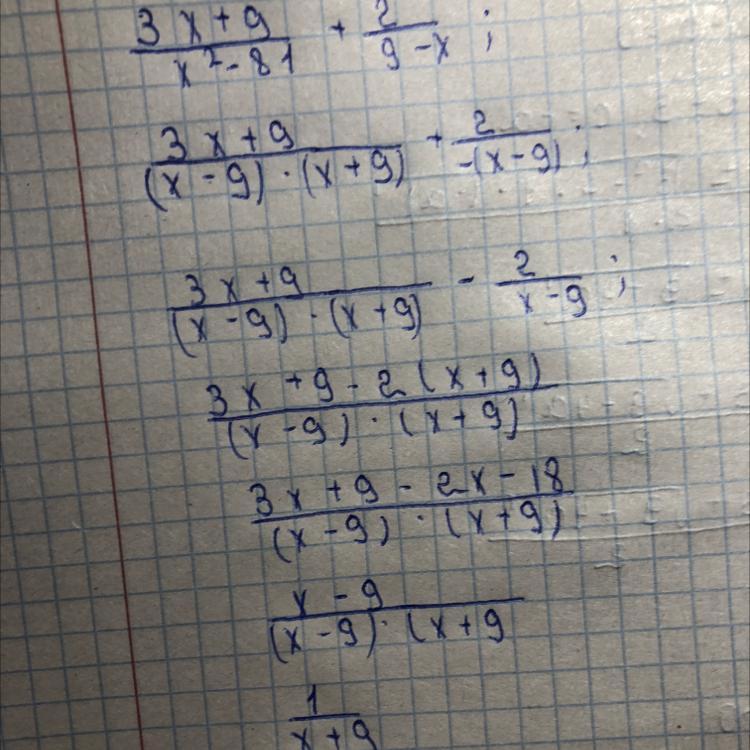 3x+9 / x²-81 + 2 / 9-x ;
3x+9 / (x-9)·(x+9) + 2 / -(x-9) ;
3x+9 / (x-9)·(x+9) - 2 / x-9 ;
3x+9-2(x+9) / (x-9)·(x+9)
3x+9-2x-18 / (x-9)·(x+9)
x-9 / (x-9)·(x+9
1 / x+9